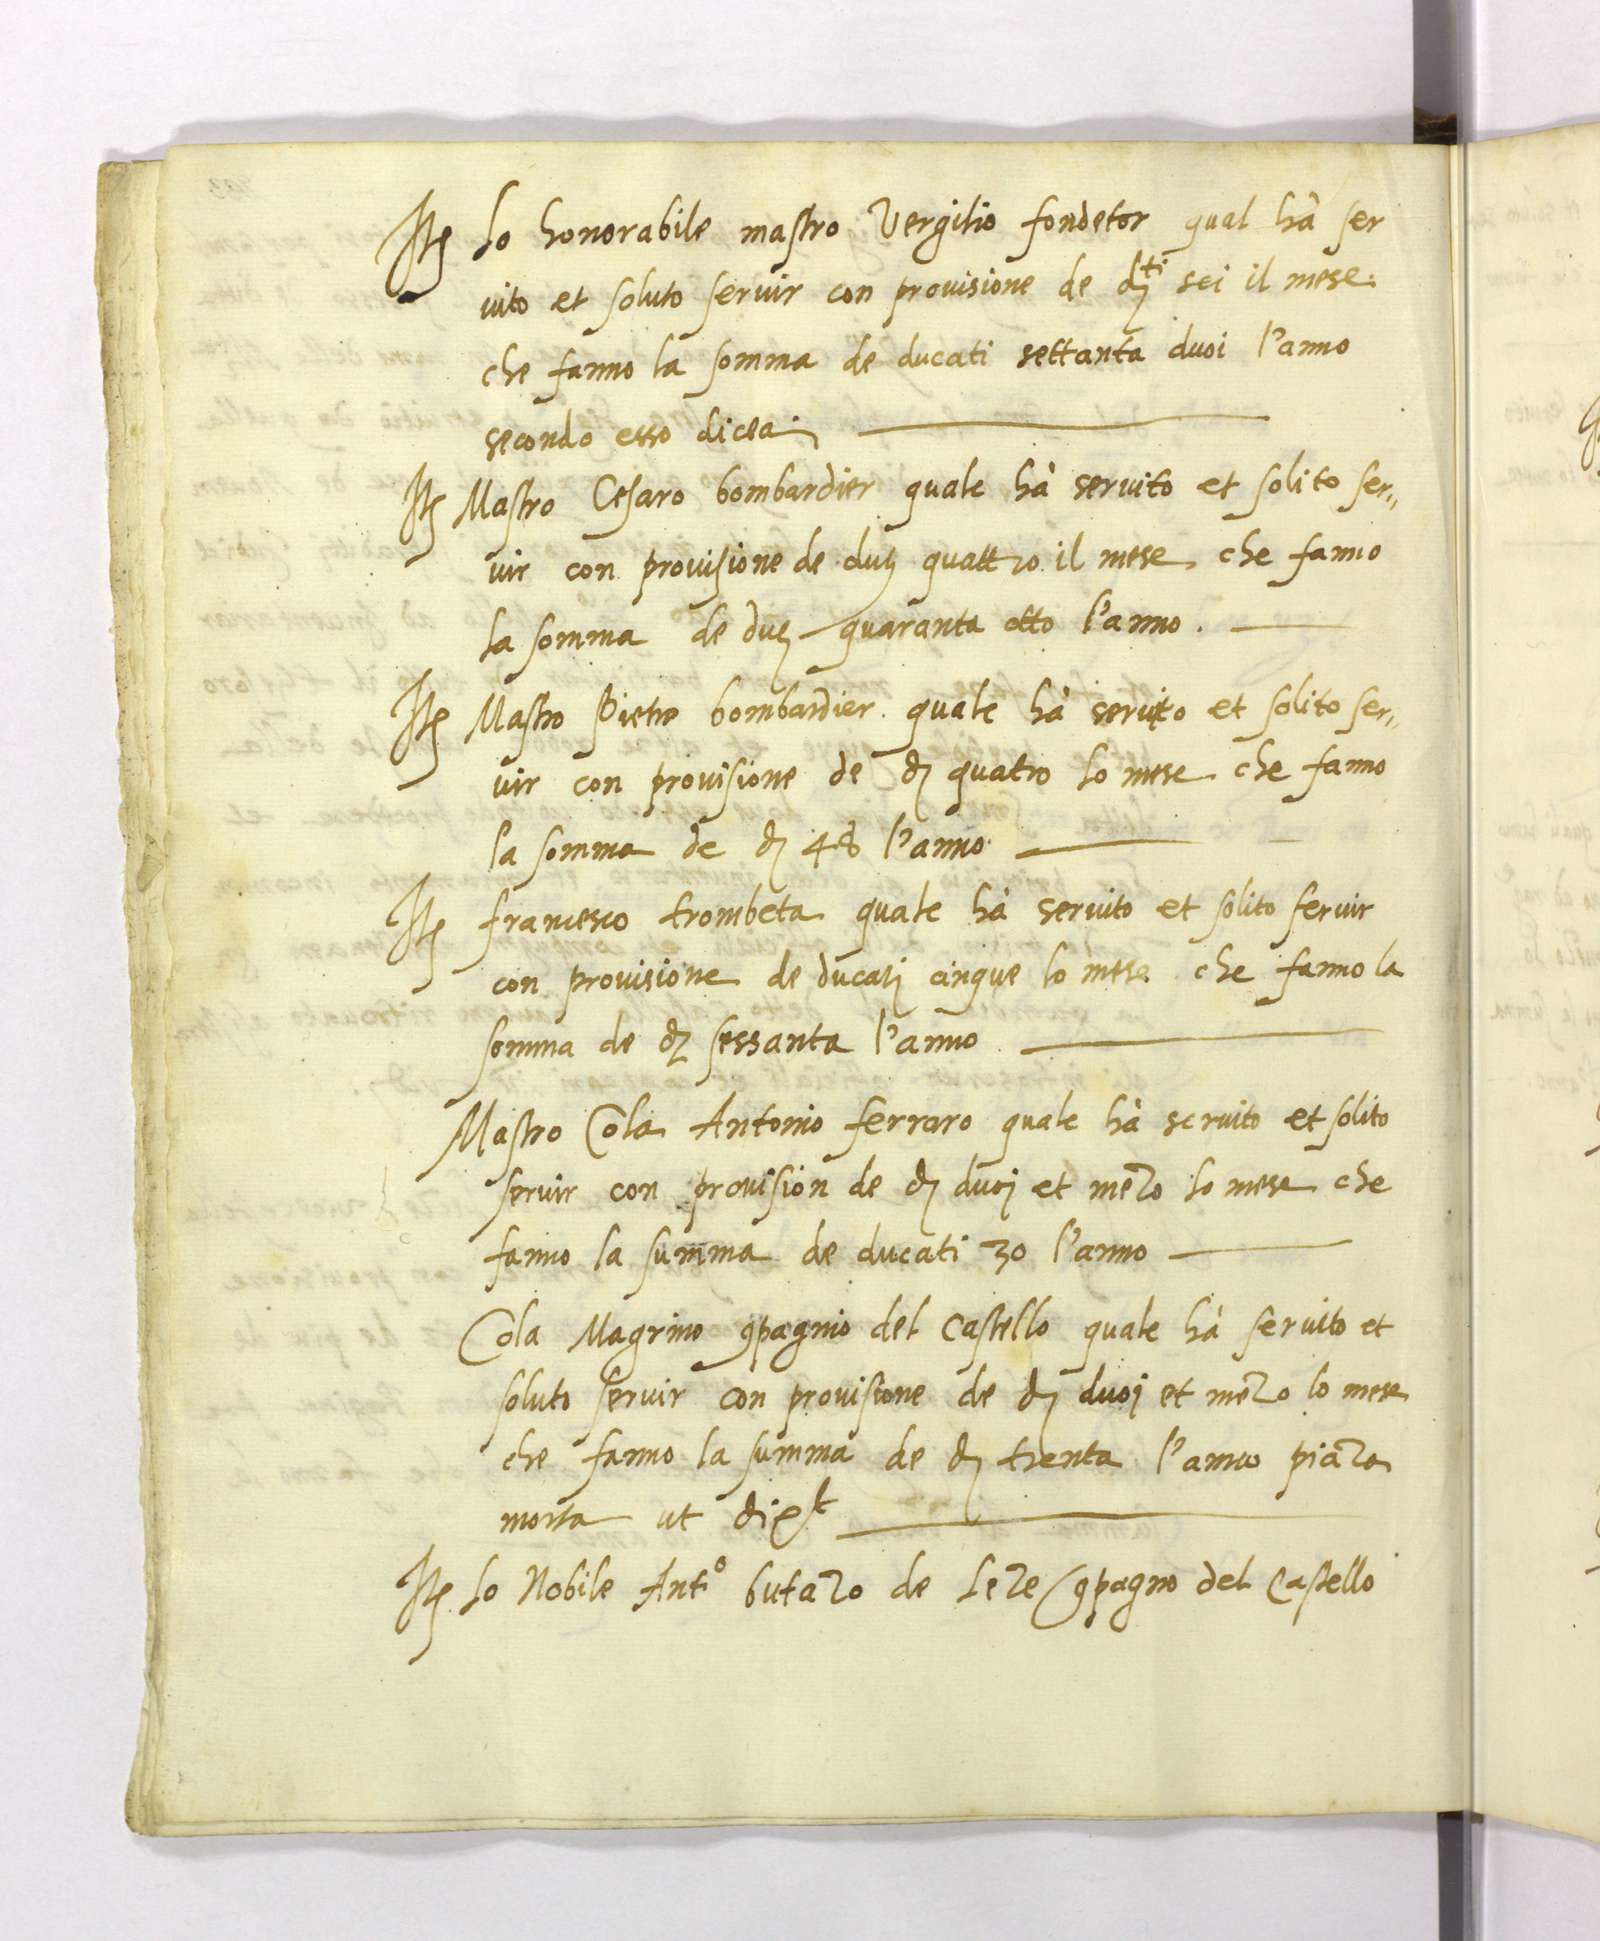 Itē lo honorabile mastro Vergilio fondetor qual hà ser
vito et soluto servir con provisione de dti sei il mese.
che fanno la somma de ducati settanta duoi l'anno
secondo esso dicea
Itē Mastro Cesaro bombardier quale hà servito et solito ser„
vir con provisione de duc quattro il mese che fanno
la somma de duc quaranta otto l'anno.
Itē Mastro Pietro bombardier. quale hà servito et solito ser„
vir con provisione de d quatro lo mese che fanno
la somma de d 48 l'anno
Itē francesco trombeta quale hà servito et solito servir
con provisione de ducatj cinque lo mese che fanno la
somma de d sessanta l'anno
Mastro Cola Antonio ferraro quale hà servito et solito
servir con provision de d duoj et mezo lo mese che
fanno la summa de ducati 30 l'anno
Cola Magrino 9pagnio del Castello quale hà servito et
soluto servir con provisione de d duoj et mezo lo mese
che fanno la summa de d trenta l'anno piaza
morta ut dixt
Itē lo Nobile Anto butazo de leze 9pagno del Castello